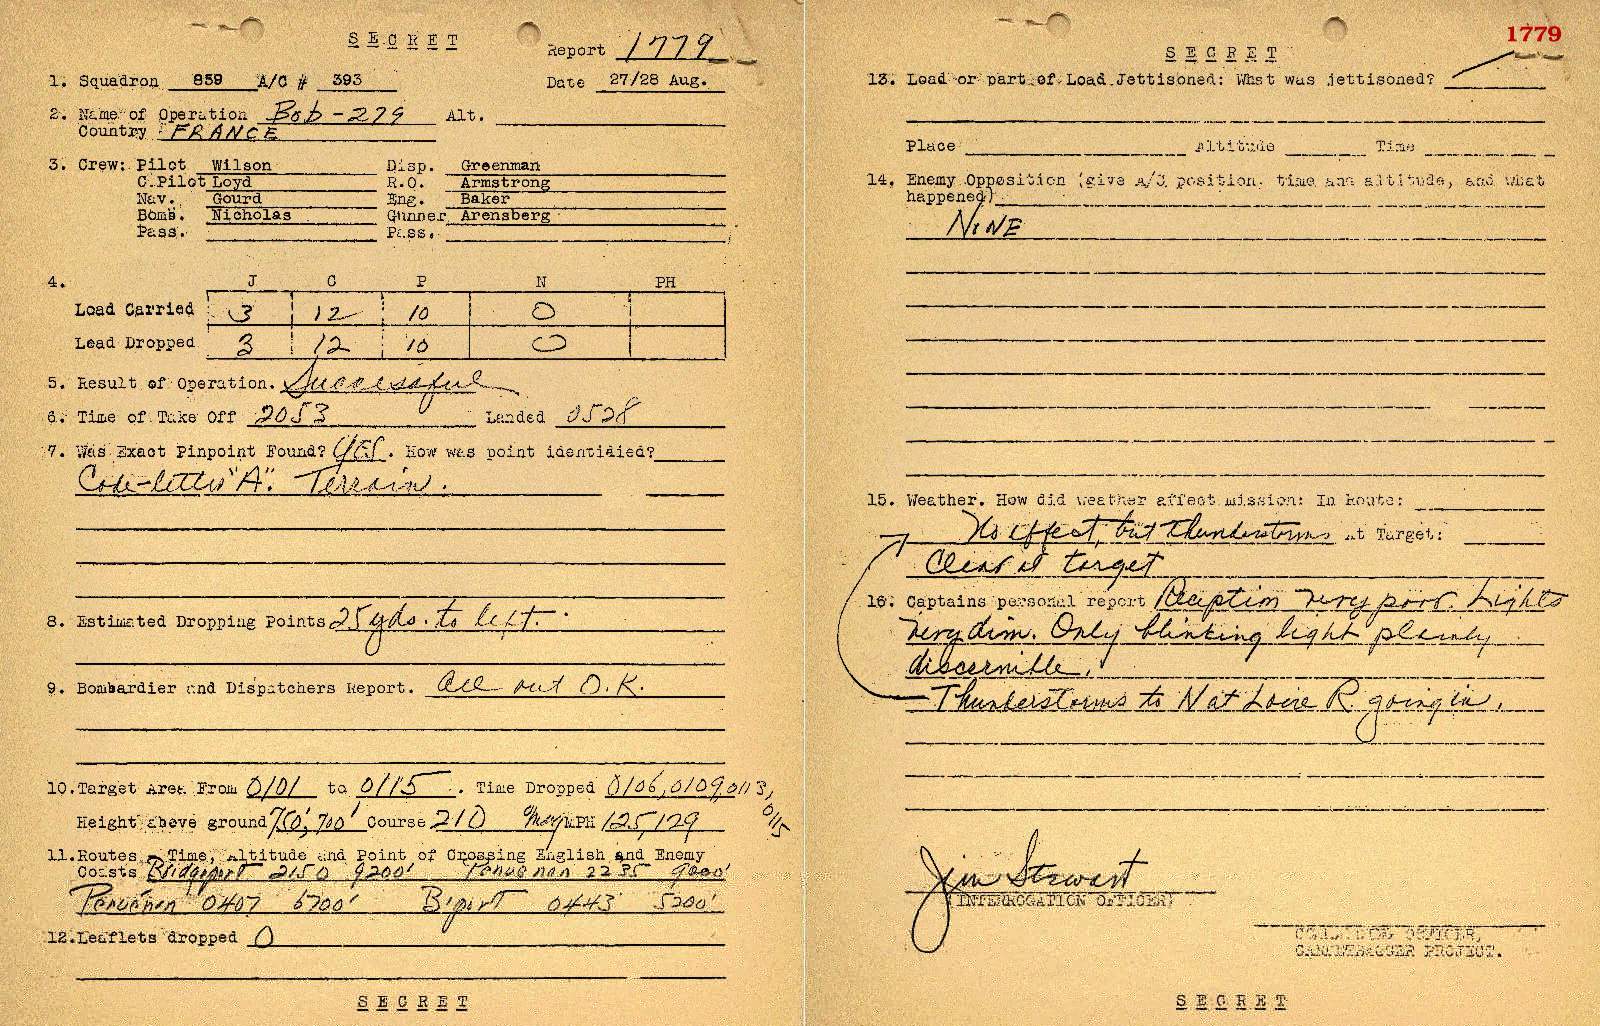 SECRET
Report 1779
1. Squadron 859 A/C # 393 Date 27/28 Aug.
2. Name of Operation Bob-279 Alt.
Country FRANCE
3. Crew: Pilot Wilson Disp. Greenman
C.Pilot Loyd R.O. Armstrong
Nav. Gourd Eng. Baker
Bomb. Nicholas Gunner Arensberg
Pass. Pass.
4. J C P N PH
Load Carried 3 12 10 0
Load Dropped 3 12 10 0
5. Result of Operation. Successful
6. Time of Take Off 2053 Landed 0528
7. Was Exact Pinpoint Found? YES. How was point identidied?
Code-letter "A". Terrain.
8. Estimated Dropping Points 25 yds. to left.
9. Bombardier and Dispatchers Report. All out O.K.
10. Target Area From 0101 to 0115. Time Dropped 0106, 0109, 0113,
0115
Height above ground 750', 700' Course 210 MPH 125, 129
11. Routes, Time, Altitude and Point of Crossing English and Enemy
Coasts Bridgeport 2150 9200' 2235 9000'
0407 6700' B'port 0443 5200'
12. Leaflets dropped 0
SECRET
1779
SECRET
13. Load or part of Load Jettisoned: What was jettisoned?
Place Altitude Time
14. Enemy Opposition (give A/C position, time and altitude, and what
happened)
NONE
15. Weather. How did weather affect mission: In Route:
No effect, but thunderstorms At Target:
Clear at target
16. Captains personal report Reception very poor. Lights
very dim. Only blinking light plainly
discernible.
Thunderstorms to N at Loire R. going in.
Jim Stewart
(INTERROGATION OFFICER)
OFFICER,
CARPETBAGGER PROJECT.
SECRET